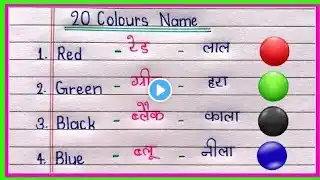 20 Colours Name
1. Red - रेड - लाल
2. Green - ग्री - हरा
3. Black - ब्लैक - काला
4. Blue - ब्लू - नीला